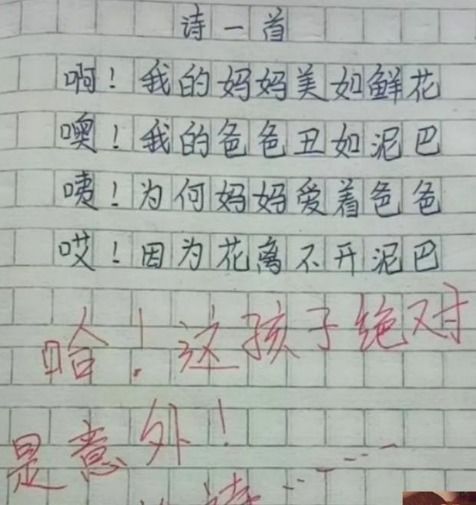 诗一首
啊！我的妈妈美如鲜花
噢！我的爸爸丑如泥巴
咦！为何妈妈爱着爸爸
哎！因为花离不开泥巴
哈！这孩子绝对
是意外！
诗……